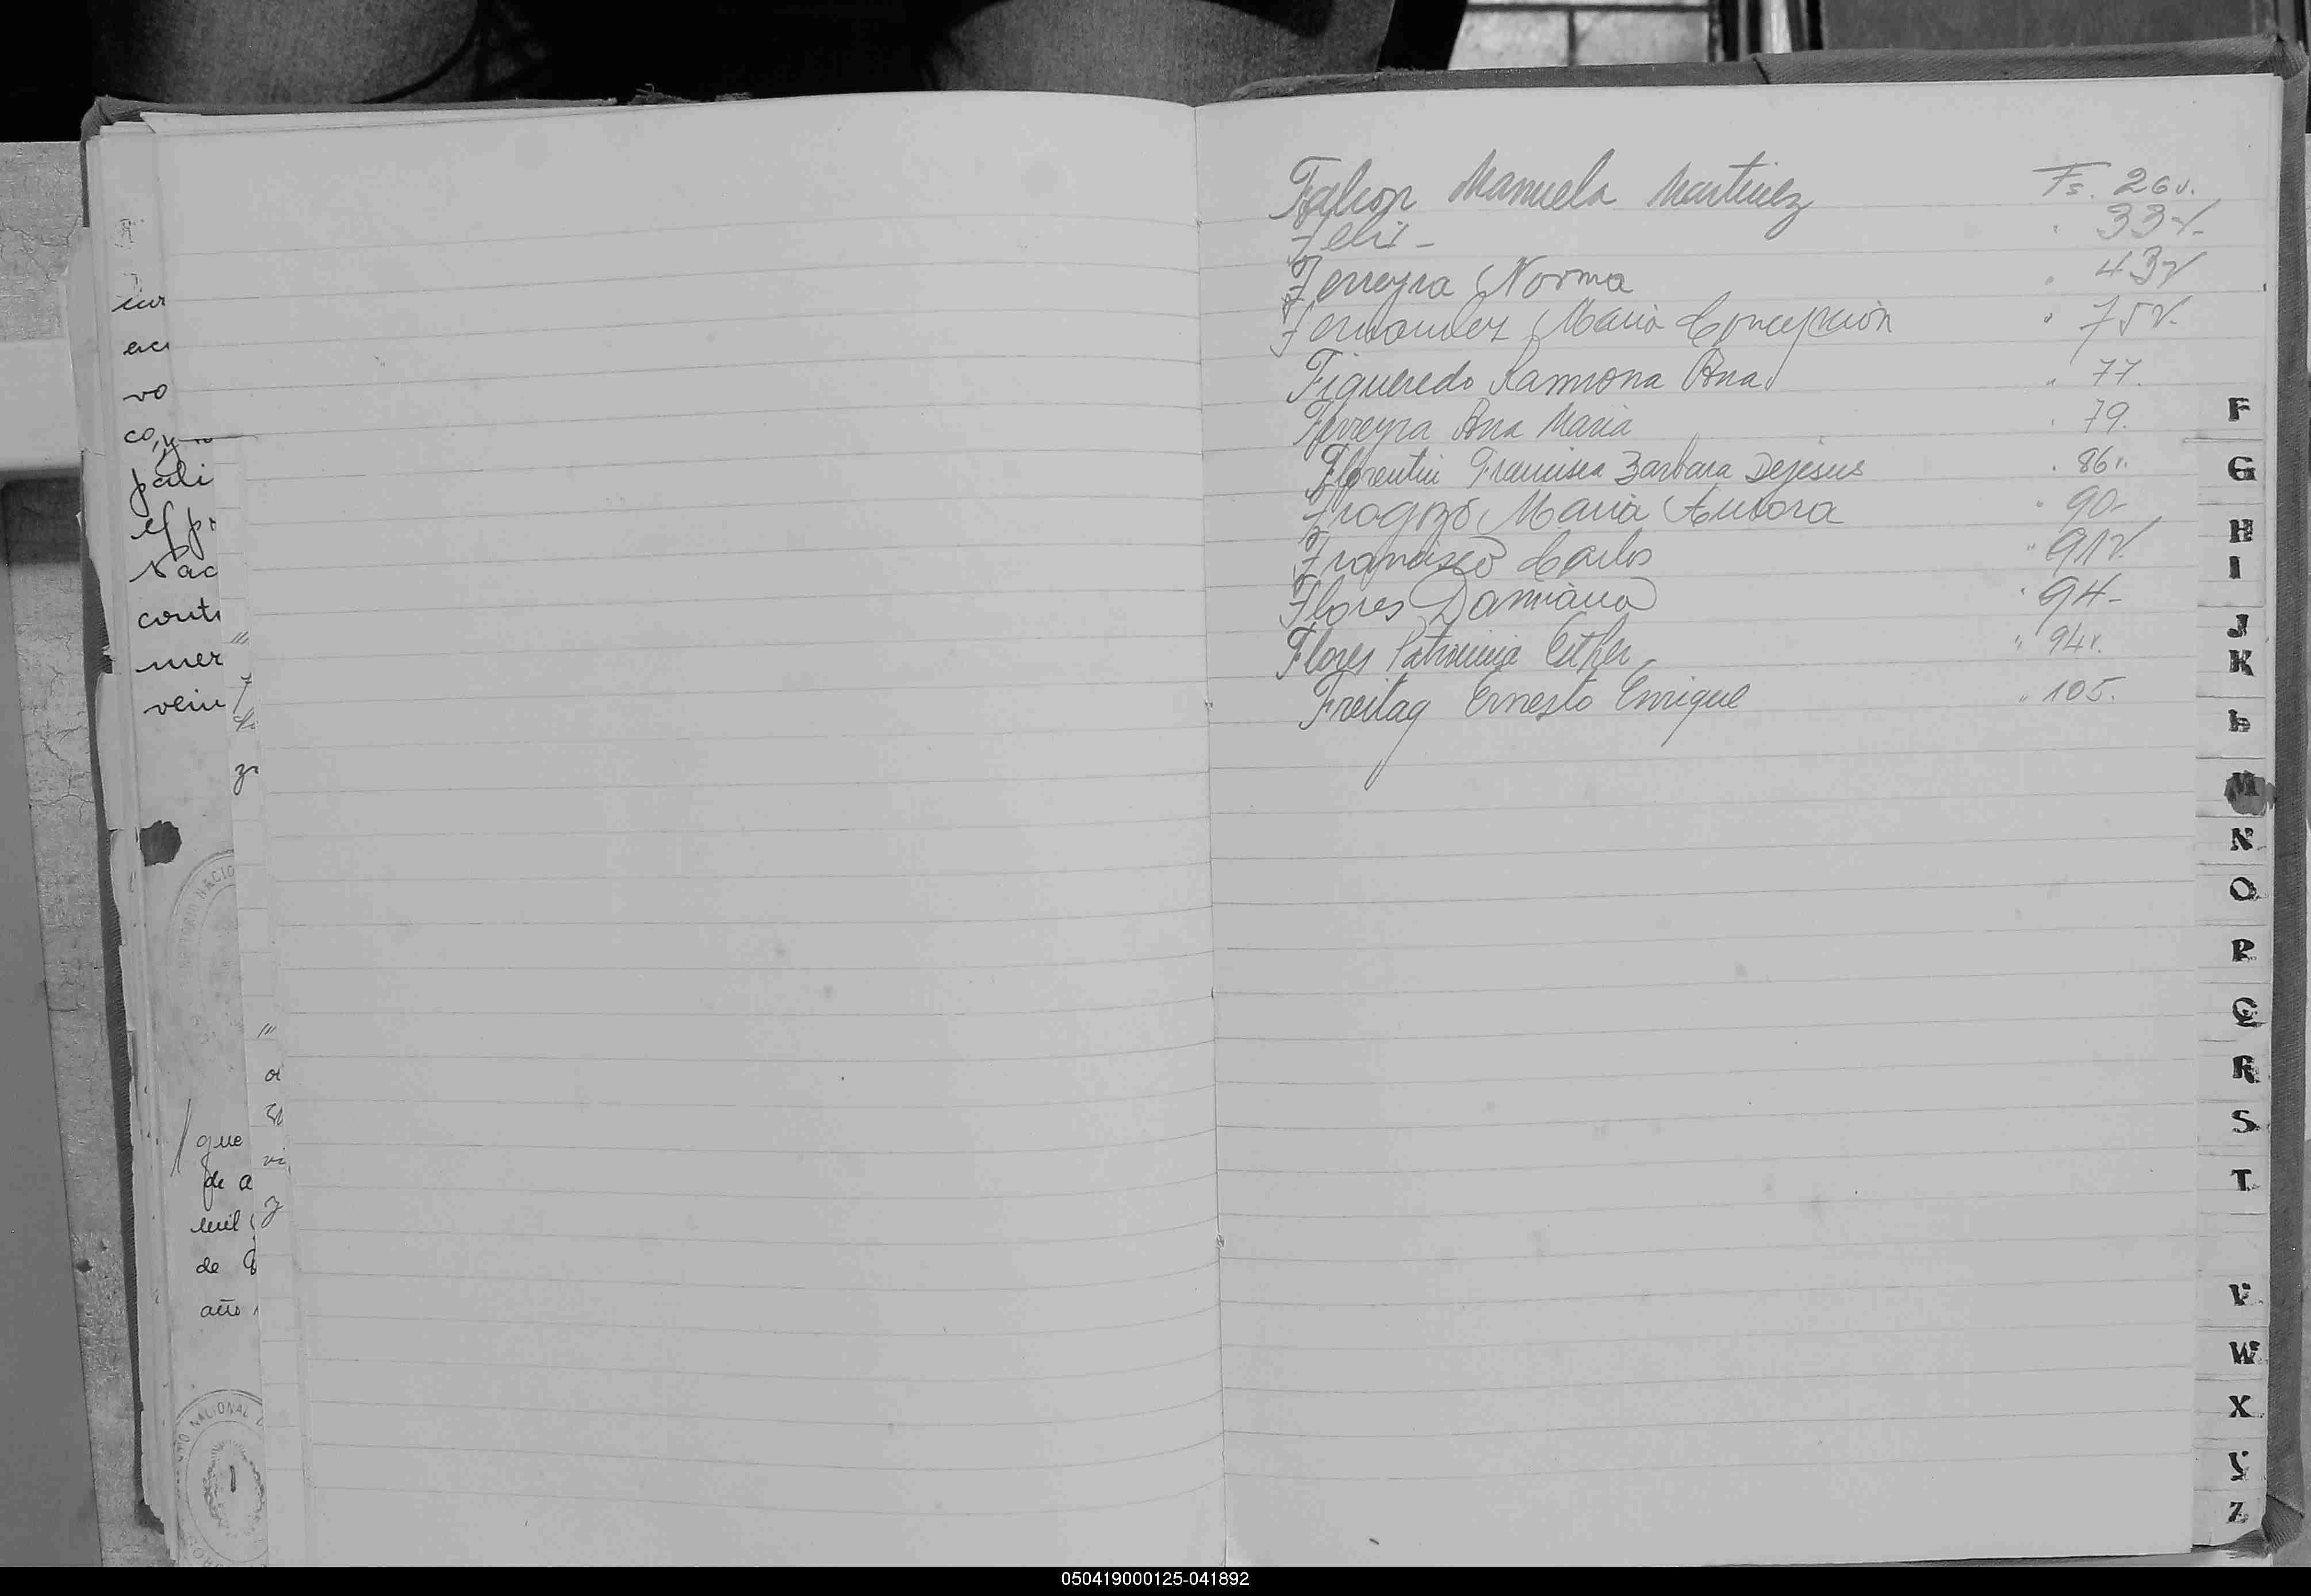 eur
 eci
vo
co
pali
el pr
sac
contr
mer
vein
NACIO
que
de a
mil
de
año
NACIONAL
Falcon Manuela Martinez Fs. 26v.
Felix - " 33v.
Ferreyra Norma " 43v
Fernandez Maria Concepcion " 75v.
Figueredo Rammona Ana " 77.
Ferreyra Ana Maria " 79.
Florentin Francisca Barbara Dejesus " 86v.
Fragozo Maria Aurora " 90-
Francisco Carlos " 91v.
Flores Damiana " 94-
Flores Patrocinia Esther " 94v.
Freitag Ernesto Enrique " 105.
F
G
H
I
J
K
L
M
N
O
P
Q
R
S
T
V
W
X
Y
Z
050419000125-041892